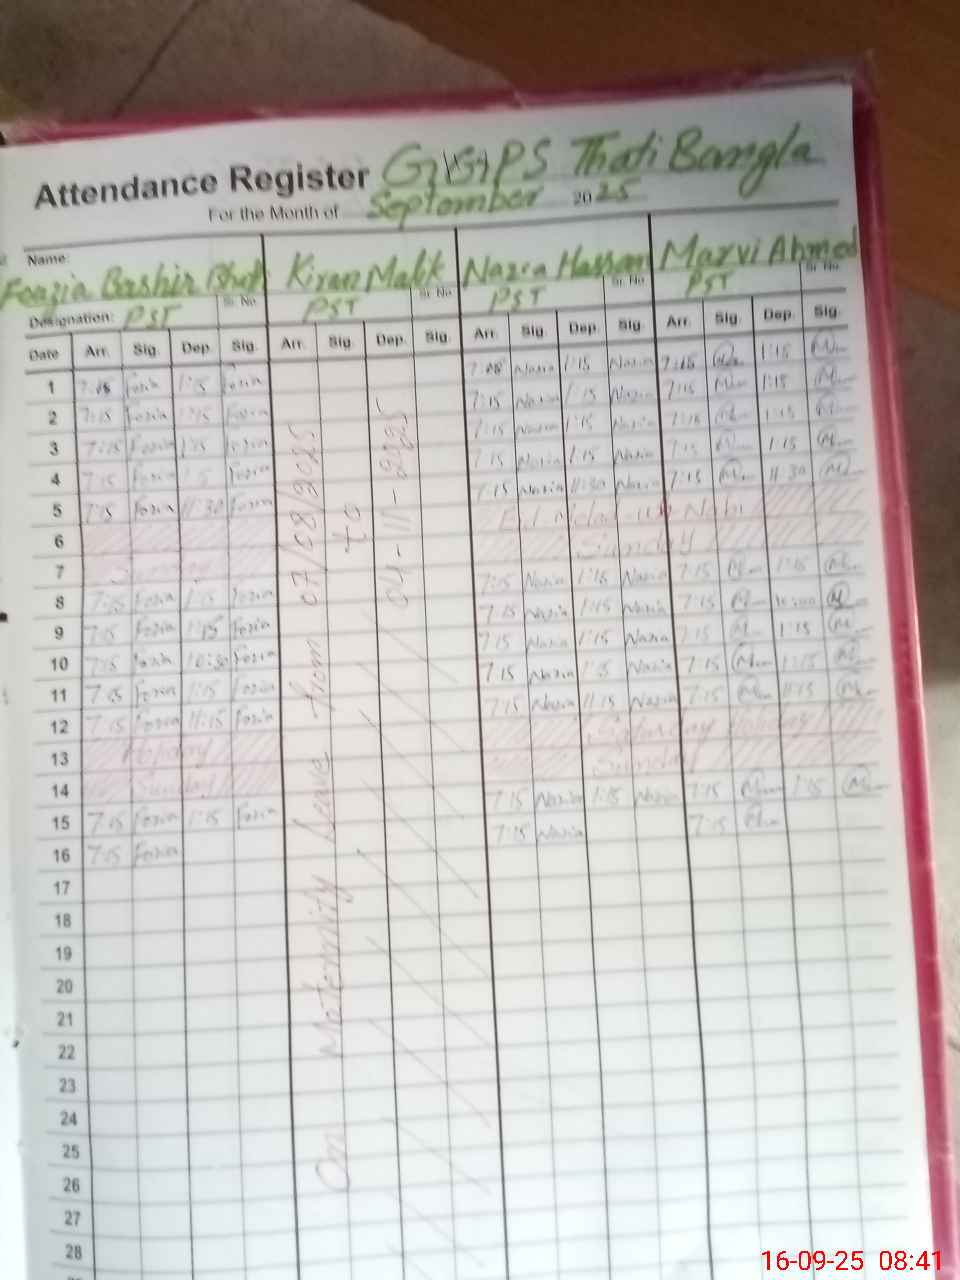 Attendance Register GGPS Thati Bangla
For the Month of September 2025
Name: Foazia Bashir Bhati Kiran Malik Nazia Hassan Marvi Ahmed
Sr. No Sr. No Sr. No Sr. No
Designation: PST PST PST PST
Date Arr. Sig. Dep. Sig. Arr. Sig. Dep. Sig. Arr. Sig. Dep. Sig. Arr. Sig. Dep. Sig.
1 Fozia 1:15 Fozia Nazia 1:15 Nazia 1:15
2 7:15 Fozia 1:15 Fozia 7:15 Nazia 1:15 Nazia 7:15 1:15
3 7:15 Fozia 1:15 Fozia 7:15 Nazia 1:15 Nazia 7:15
4 7:15 Fozia Fozia 7:15 Nazia 1:15 Nazia 7:15 1:15
5 7:15 Fozia 11:30 Fozia 7:15 Nazia 11:30 Nazia 7:15 11:30
6 Eid Milad-un-Nabi
7 Sunday Sunday
8 7:15 Fozia 1:15 Fozia 7:15 Nazia 1:15 Nazia 7:15 1:15
9 7:15 Fozia 1:15 Fozia 7:15 Nazia 1:15 Nazia 7:15
10 7:15 Fozia 10:30 Fozia 7:15 Nazia 1:15 Nazia 7:15 1:15
11 Fozia 1:15 Fozia 7:15 Nazia 1:15 Nazia 7:15 1:15
12 7:15 Fozia 11:15 Fozia 7:15 Nazia 11:15 Nazia 7:15 11:15
13 Holiday Saturday Holiday
14 Sunday Sunday
15 7:15 Fozia 1:15 Fozia 7:15 Nazia 1:15 Nazia 7:15 1:15
16 7:15 Fozia 7:15 Nazia 7:15
17
18
19
20
21
22
23
24
25
26
27
28
On Maternity Leave from 07/08/2025
to
04-11-2025
16-09-25 08:41